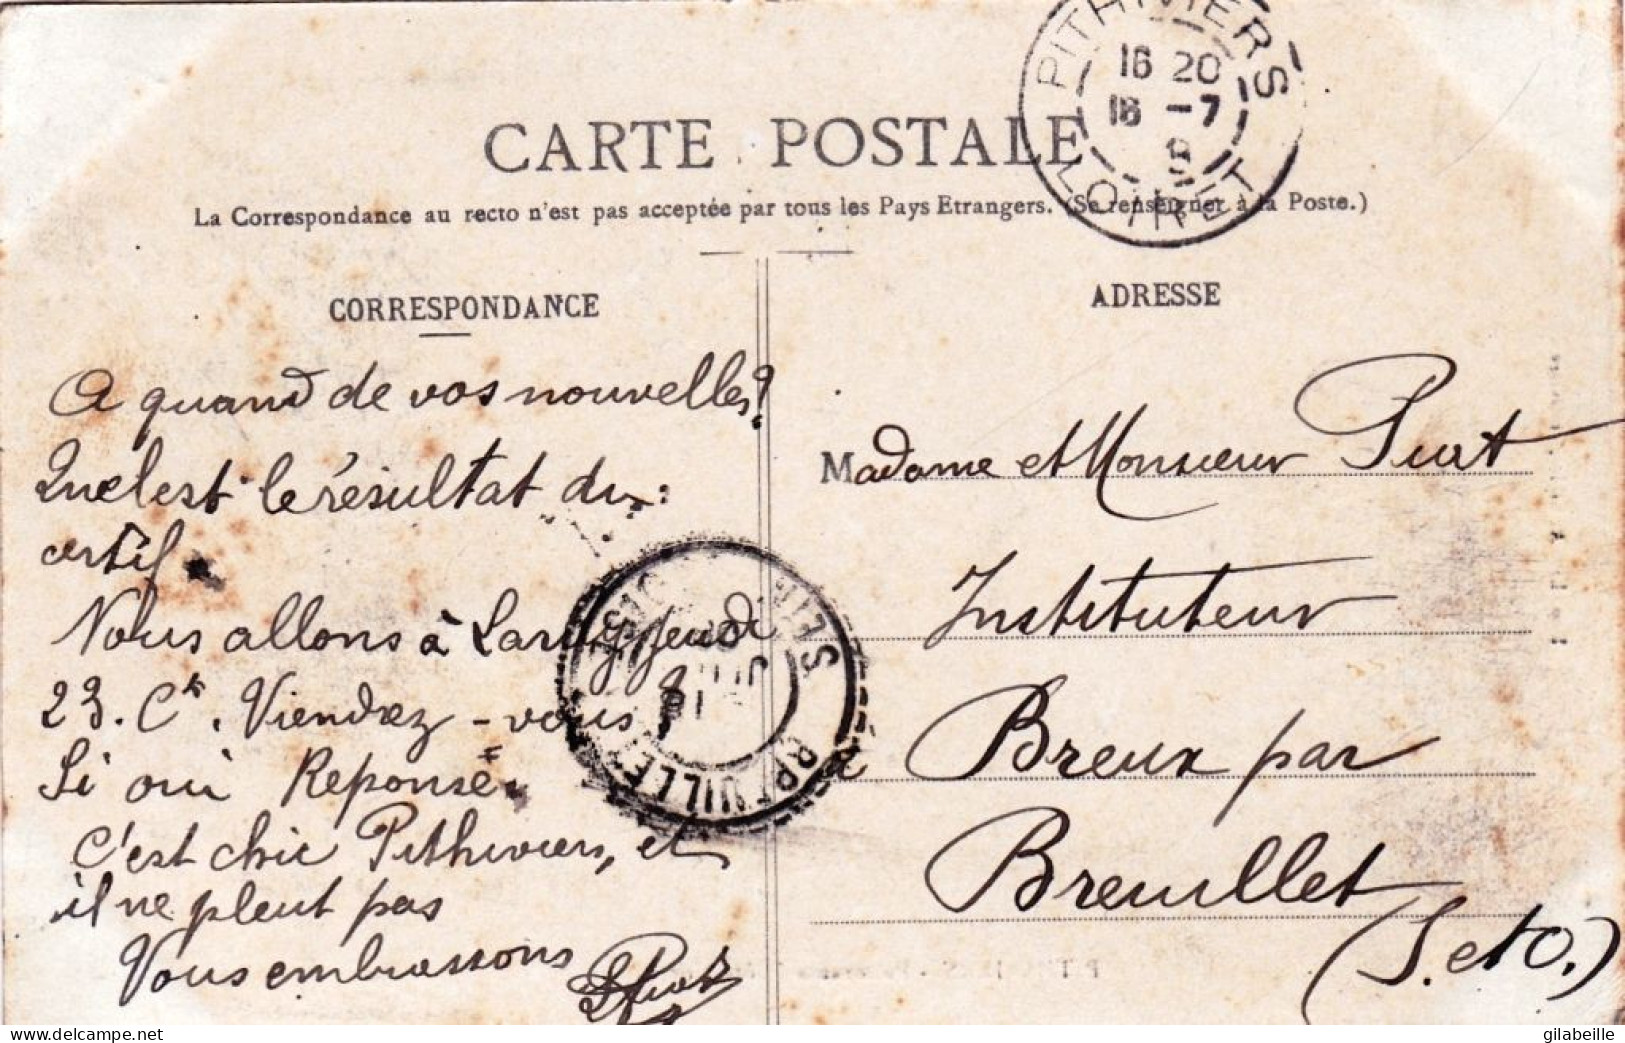 PITHIVIERS
16 20
16 -7
LOIRET
CARTE POSTALE
La Correspondance au recto n'est pas acceptée par tous les Pays Etrangers. (Se renseigner à la Poste.)
CORRESPONDANCE
A quand de vos nouvelles?
Quel est le résultat du
certif
Nous allons à jeudi
23. Ct. Viendrez-vous
Si oui Réponse.
C'est chic Pithiviers, et
il ne pleut pas
Vous embrassons
ADRESSE
Madame et Monsieur
Instituteur
à Breux par
Breuillet
(S. et O.)
BREUILLET
gilabeille